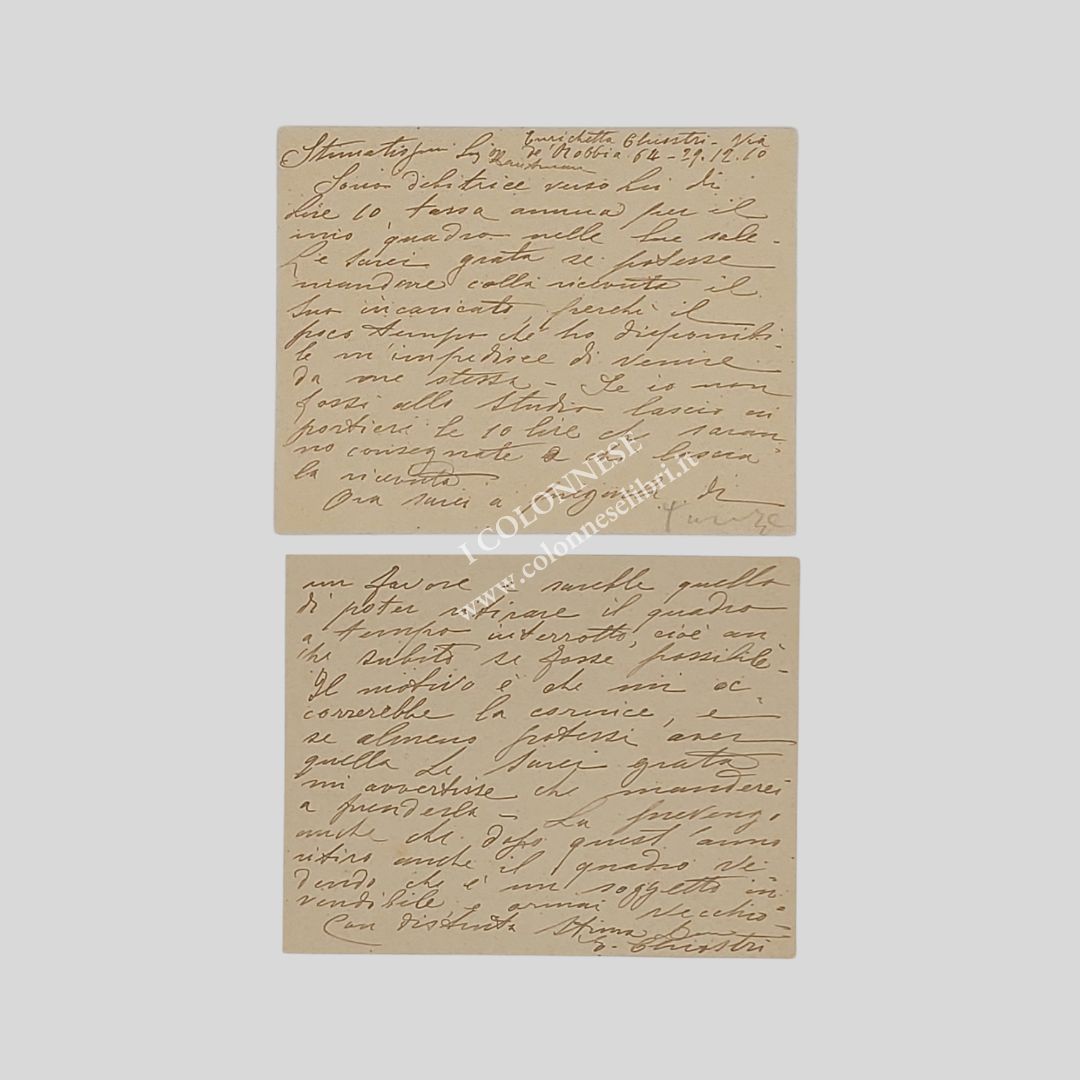 Enrichetta Chiostri - Via
de' Robbia 64 - 29.12.10
Stimatissimo Sig.
Sono debitrice verso Lei di
Lire 10 tassa annua per il
mio quadro nelle Sue sale -
Le sarei grata se potesse
mandare colla ricevuta il
Suo incaricato, perchè il
poco tempo che ho disponibi-
le m'impedisce di venire
da me stessa - Se io non
fossi allo studio lascio ai
portieri le 10 lire che saran-
no consegnate a chi lascia
la ricevuta
Ora sarei a pregarla di
Firenze
un favore e sarebbe quello
di poter ritirare il quadro
a tempo interrotto, cioè an-
che subito se fosse possibile -
Il motivo è che mi oc-
correrebbe la cornice, e
se almeno potessi aver
quella Le sarei grata
mi avvertisse che manderei
a prenderla - La prevengo
anche che dopo quest'anno
ritiro anche il quadro ve-
dendo che è un soggetto in-
vendibile e ormai vecchio -
Con distinta stima
E. Chiostri
I COLONNESE
www.colonneselibri.it